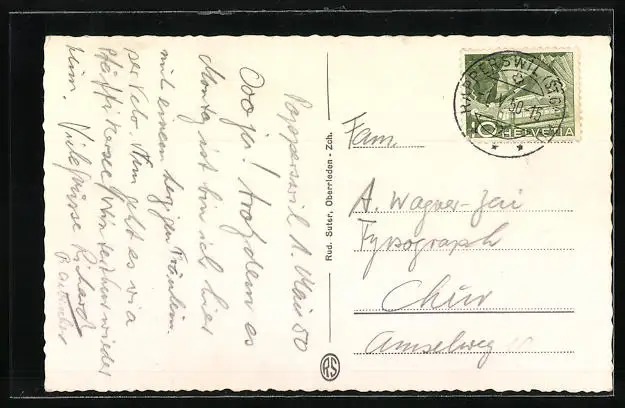 Rapperswil 1. Mai 50
Ooo ja! trotzdem es
Montag ist bin ich hier
mit einem herzigen Fräulein
per Velo. Nun geht es via
Pfäffikersee, Winterthur wieder
heim. Viele Grüsse Richard
Rud. Suter, Oberrieden - Zch.
RS
RAPPERSWIL (ST. GALLEN)
50-15
10 HELVETIA
Fam.
A. Wagner-
Typograph
Chur
Amselweg